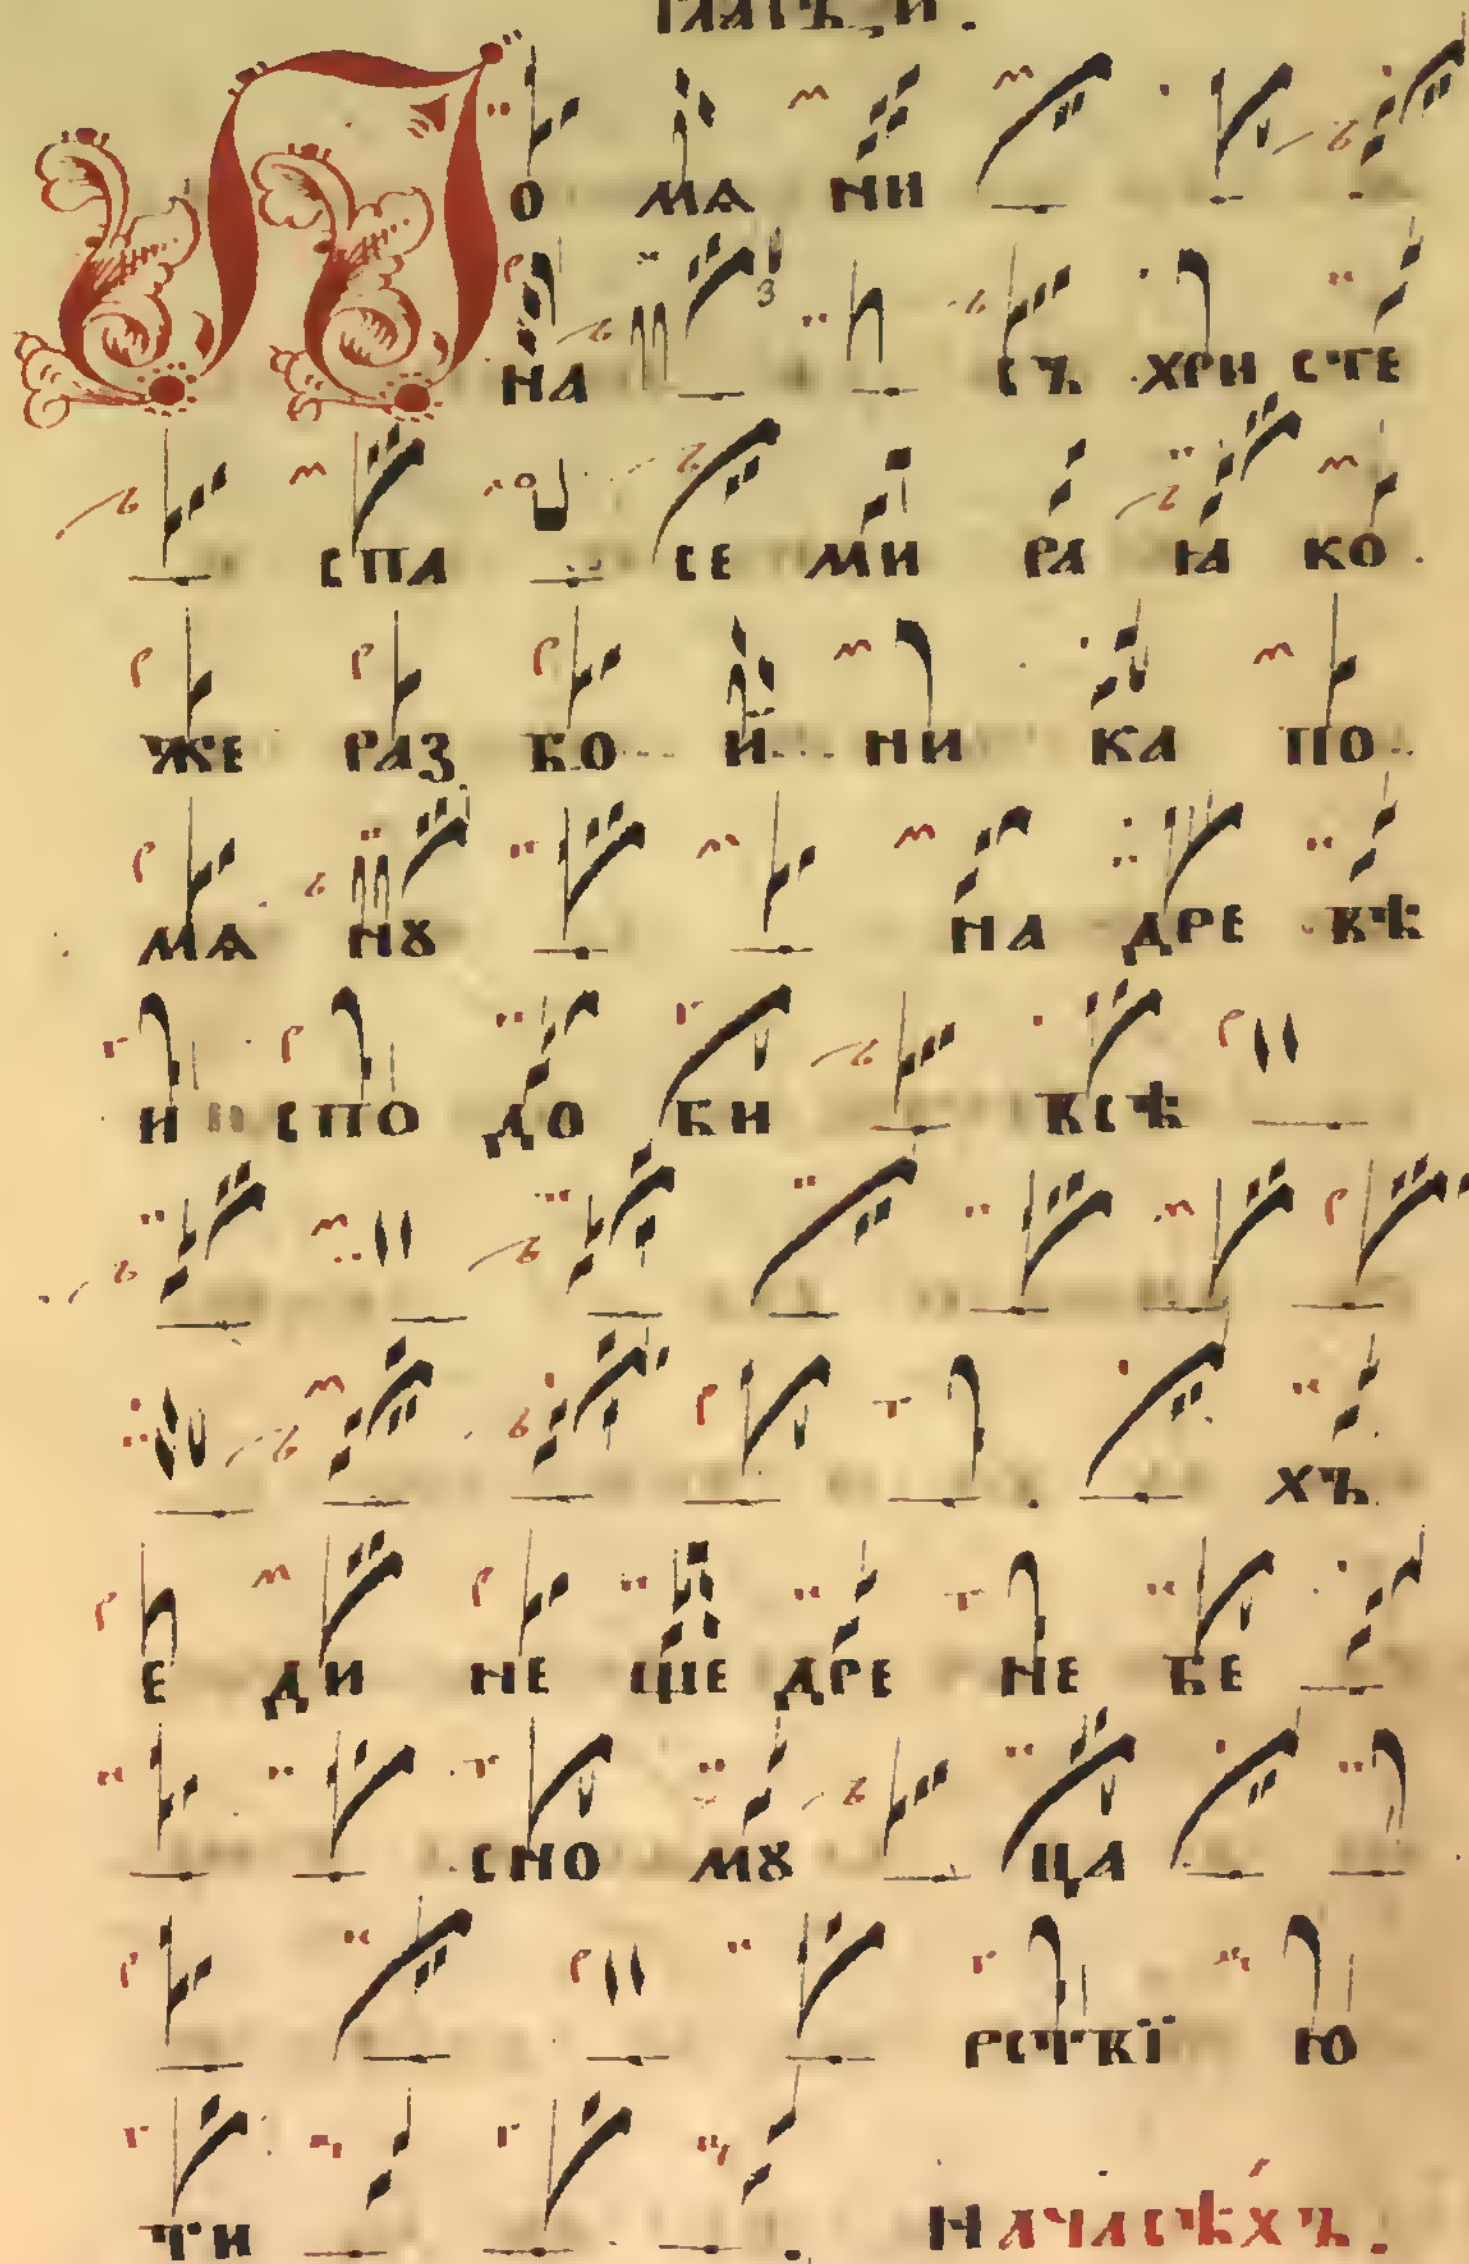 гласъ и.
П о мѧ ни
на съ хри сте
спа се ми ра ꙗ ко
же раз бо и ни ка по
мѧ нꙋ на дре вѣ
и спо до би всѣ
хъ
е ди не ще дре не бе
сно мꙋ ца
рствї ю
ти на часѣхъ.